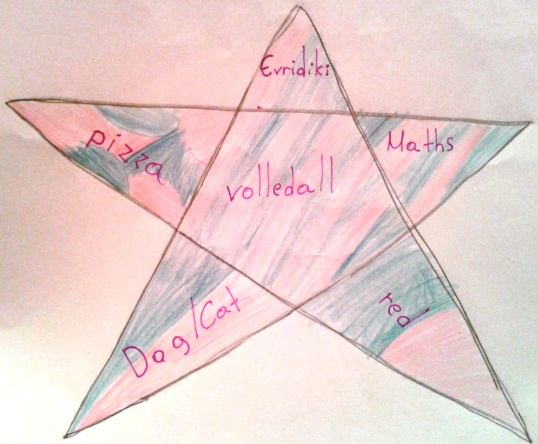 Evridiki
pizza
Maths
volledall
Dog/Cat
red